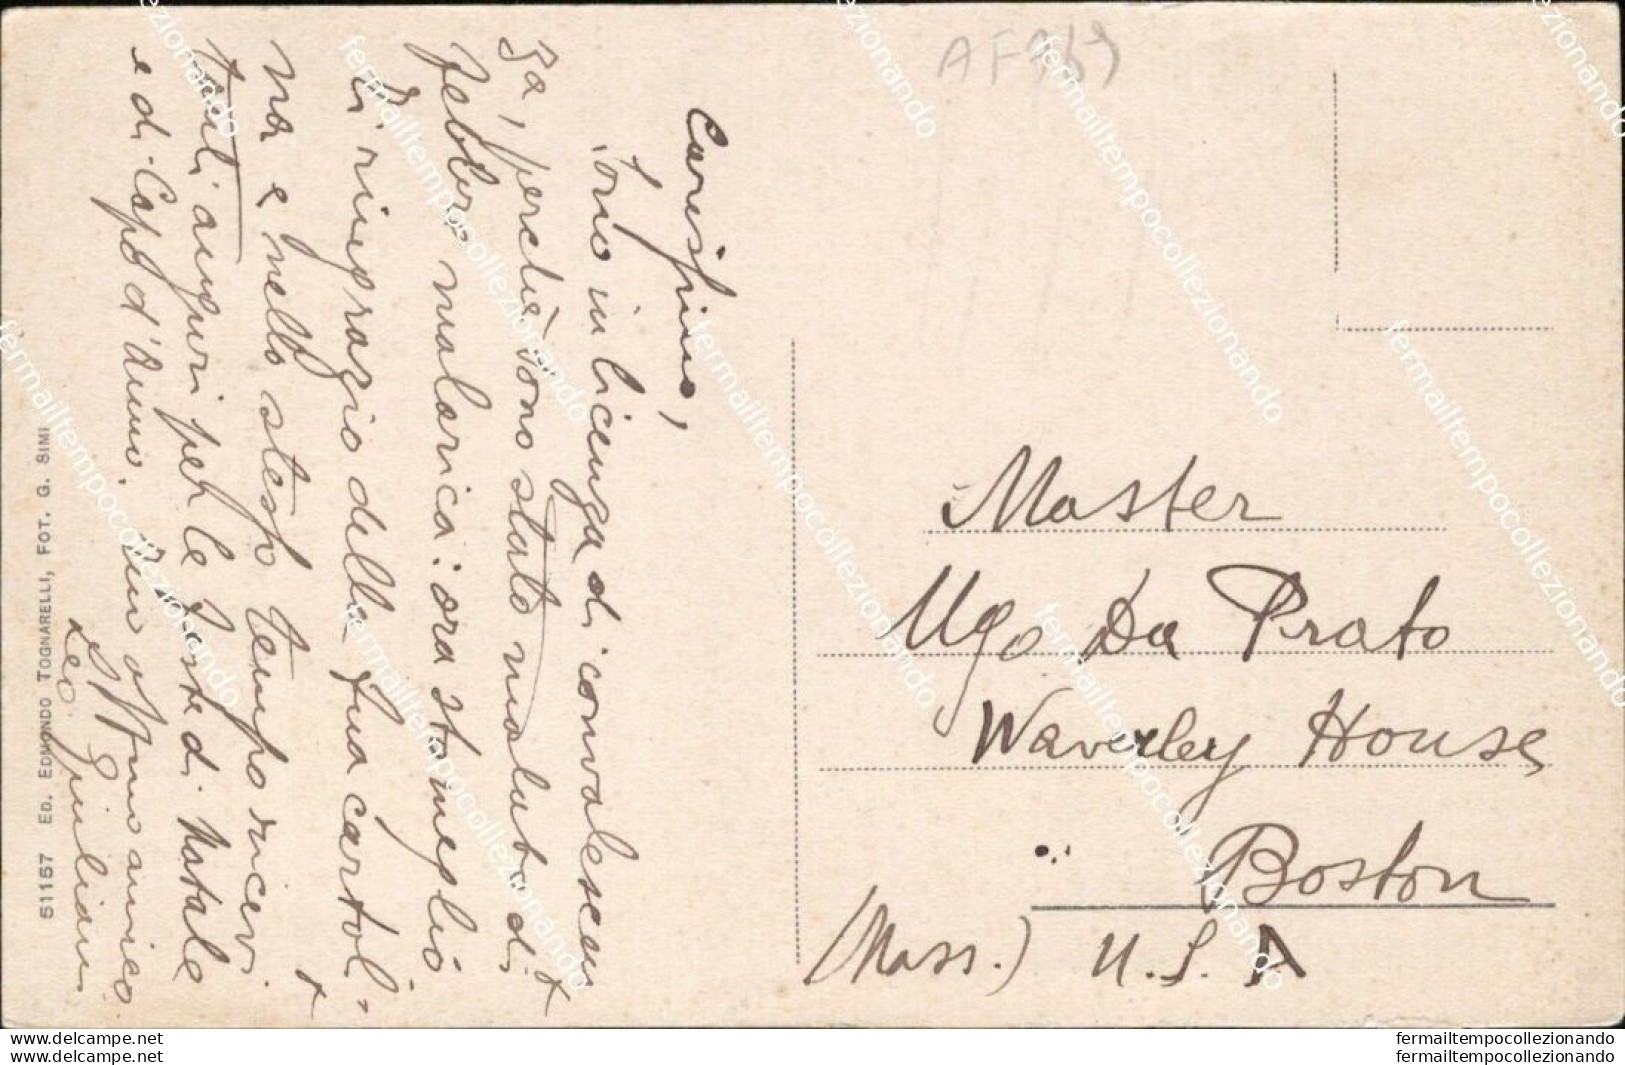 AF
Carissimo,
sono in licenza di convalescen
za, perchè sono stato malato di
febbre malarica: ora sto meglio
Ti ringrazio della tua cartol-
ina e nello stesso tempo ricevi
tanti auguri per le feste di Natale
e di Capo d'Anno. Tuo aff.mo amico
Leo Giuliani
Master
Ugo Da Prato
Waverley House
Boston
(Mass.) U.S.A
51157 ED. EDMONDO TOGNARELLI, FOT. G. SIMI
fermailtempocollezionando
fermailtempocollezionando
ww.delcampe.net
ww.delcampe.net
fermailtempocollezionando
fermailtempocollezionando